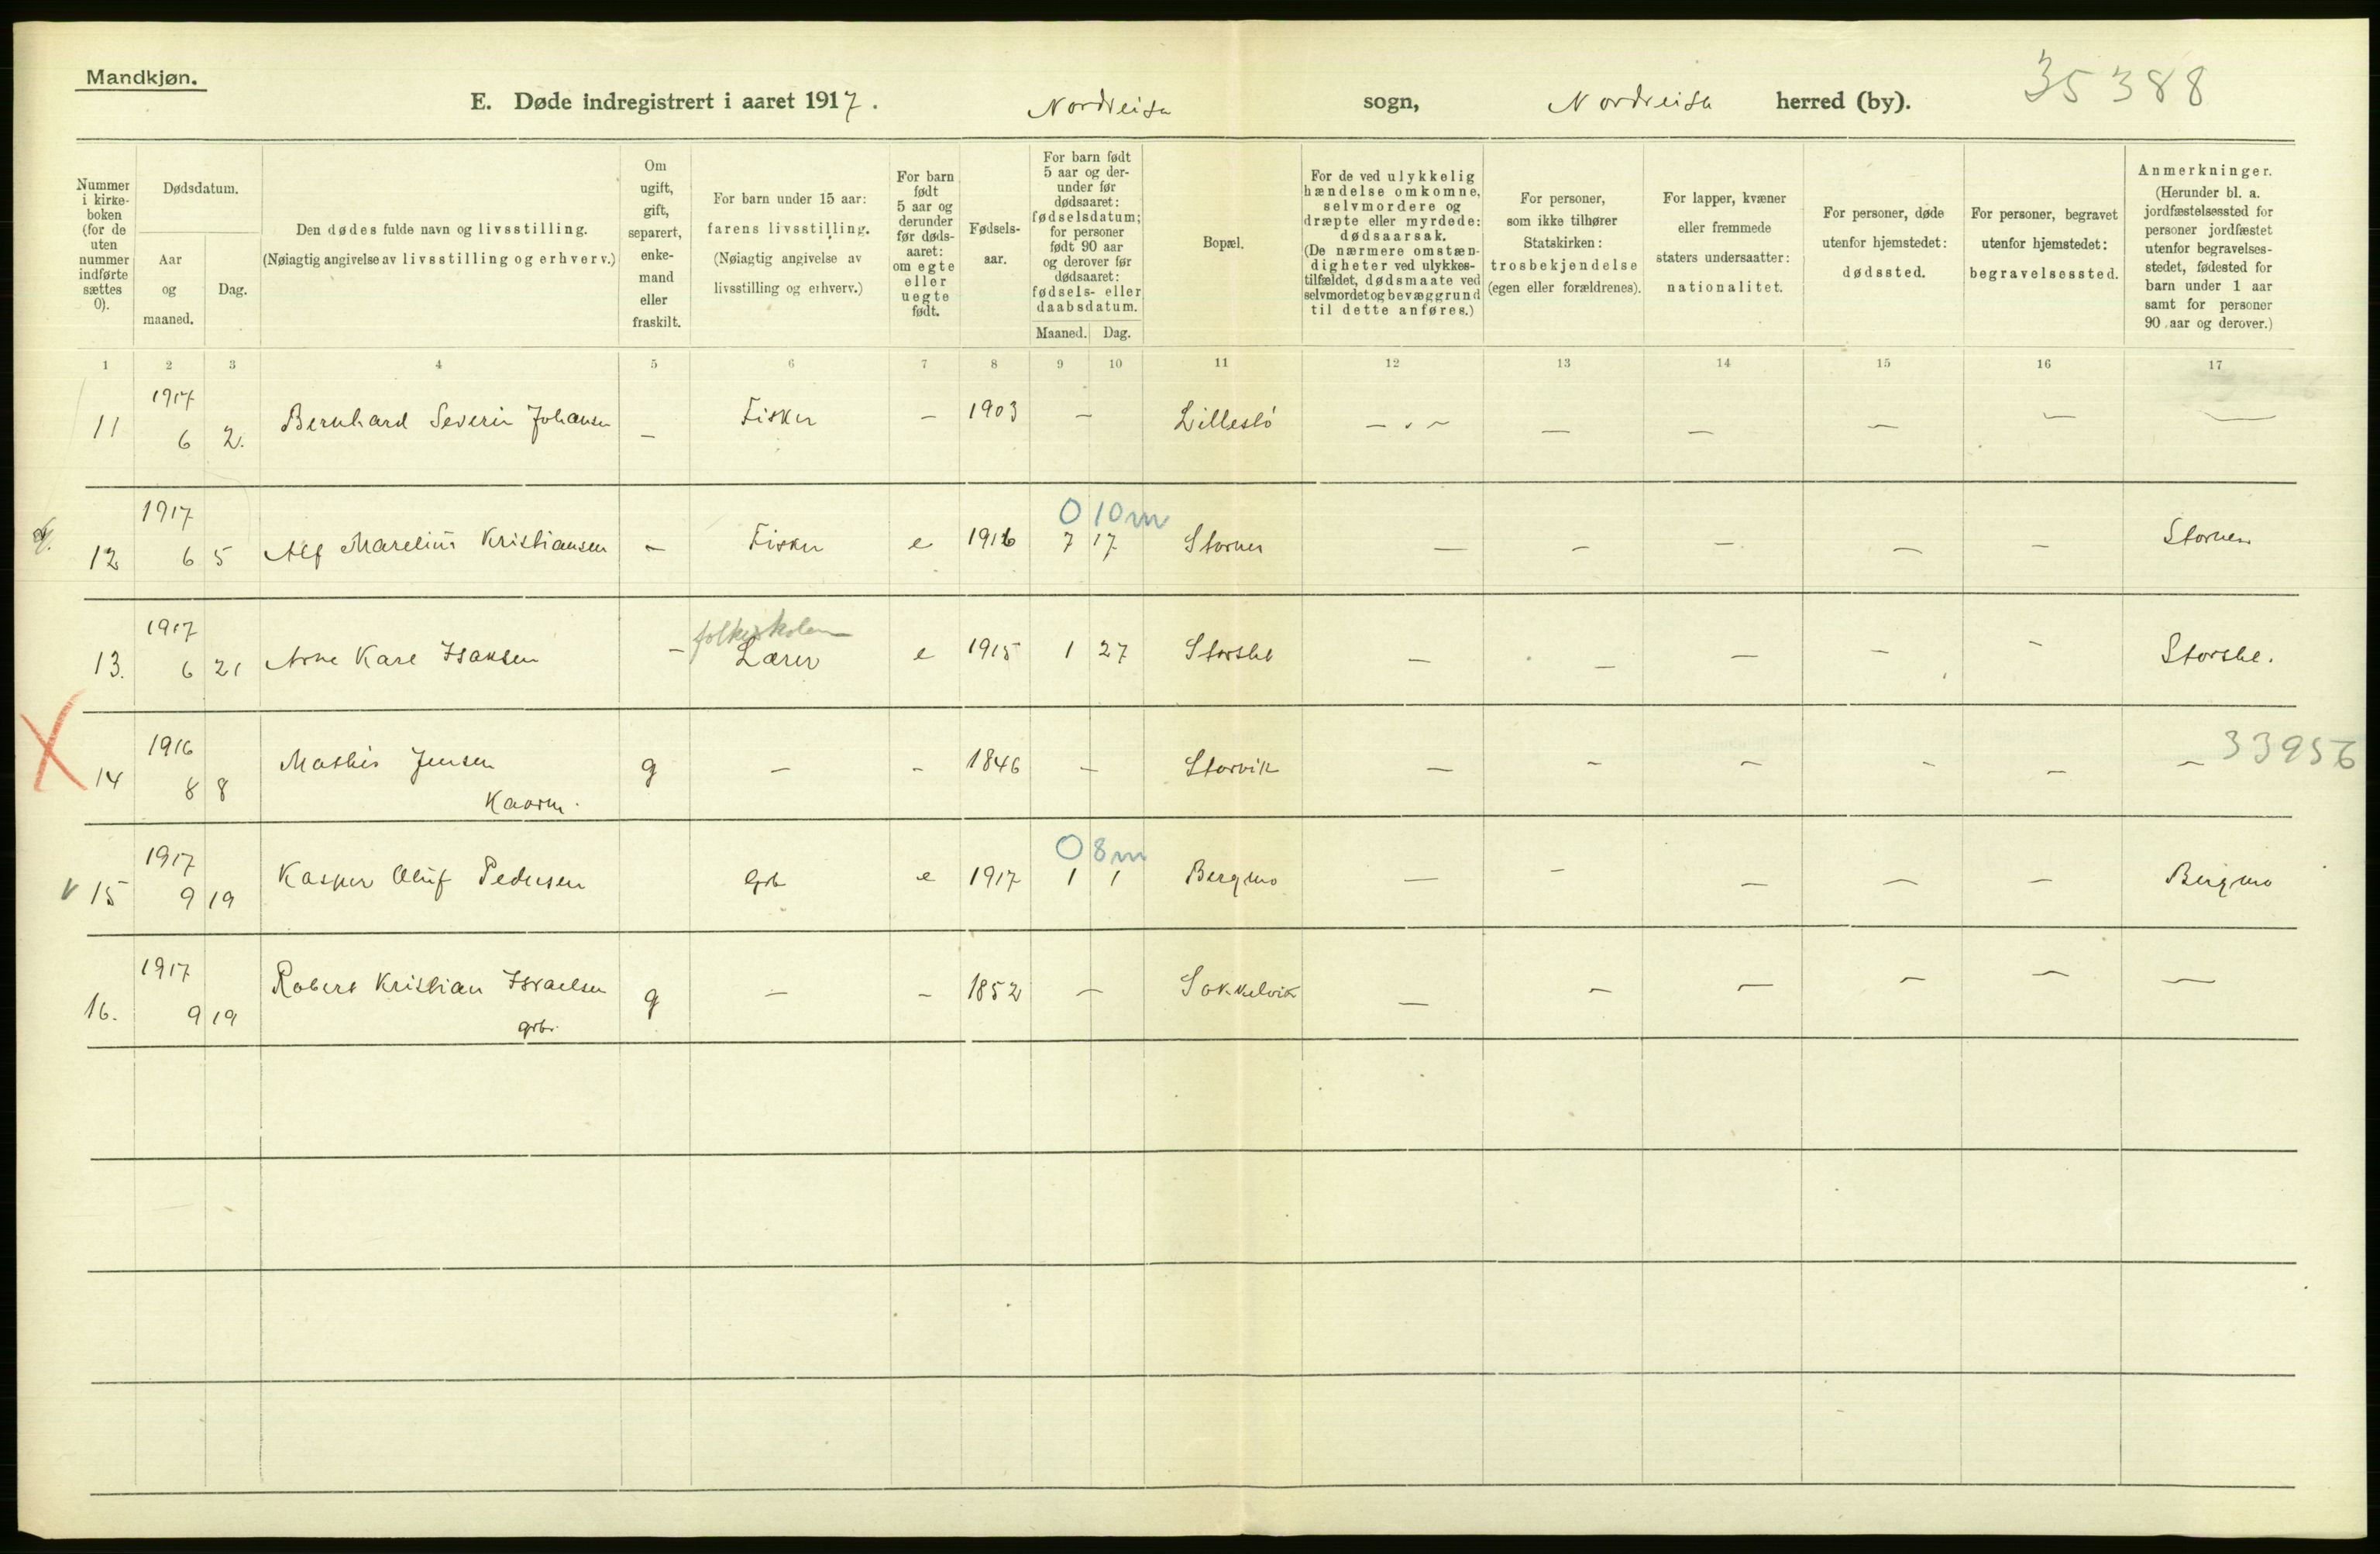 Mandkjøn.
35388
E. Døde indregistrert i aaret 1917. Nordreisa sogn, Nordreisa herred (by).
Nummer i kirke-boken (for de uten nummer indførte sættes 0).
Dødsdatum.
Aar og maaned.
Dag.
Den dødes fulde navn og livsstilling.
(Nøiagtig angivelse av livsstilling og erhverv.)
Om ugift, gift, separert, enke-mand eller fraskilt.
For barn under 15 aar:
farens livsstilling.
(Nøiagtig angivelse av
livsstilling og erhverv.)
For barn født 5 aar og derunder før døds-aaret: om egte eller uegte født.
Fødsels-aar.
For barn født 5 aar og der-under før dødsaaret: fødselsdatum; for personer født 90 aar og derover før dødsaaret: fødsels- eller daabsdatum.
Maaned. Dag.
Bopæl.
For de ved ulykkelig hændelse omkomne, selvmordere og dræpte eller myrdede: dødsaarsak. (De nærmere omstæn-digheter ved ulykkes-tilfældet, dødsmaate ved selvmordet og bevæggrund til dette anføres.)
For personer, som ikke tilhører Statskirken: trosbekjendelse (egen eller forældrenes).
For lapper, kvæner eller fremmede staters undersaatter: nationalitet.
For personer, døde utenfor hjemstedet: dødssted.
For personer, begravet utenfor hjemstedet: begravelsessted.
Anmerkninger.
(Herunder bl. a. jordfæstelsessted for personer jordfæstet utenfor begravelses-stedet, fødested for barn under 1 aar samt for personer 90 aar og derover.)
1 2 3 4 5 6 7 8 9 10 11 12 13 14 15 16 17
1917
11 6 2. Bernhard Severin Johansen – Fisker – 1903 – Lilleslö – – – – – – –
1917 0 10m
12 6 5 Alf Marelius Kristiansen – Fisker e 1916 7 17 Stornes – – – – – Stornes
1917 folkeskolen
13. 6 21 Arne Kare Isaksen – Lærer e 1915 1 27 Storslet – – – – – Storslet.
1916 33956
14 8 8 Mathis Jensen g – – 1846 – Storvik – – – – – –
Kaarm.
1917 0 8m
v 15 9 19 Kasper Oluf Pedersen Grb e 1917 1 1 Bergmo – – – – – Bergmo
1917
16. 9 19 Robert Kristian Israelsen g – – 1852 – Sokkelvik – – – – – –
grbr.